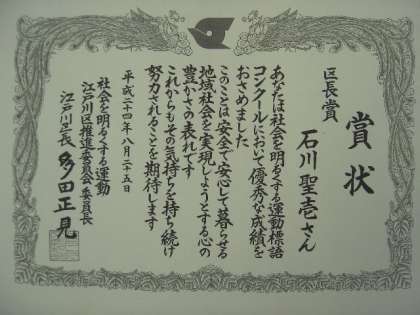 賞状
区長賞
石川聖壱さん
あなたは社会を明るくする運動標語
コンクールにおいて優秀な成績を
おさめました
このことは安全で安心して暮らせる
地域社会を実現しようとする心の
豊かさの表れです
これからもその気持ちを持ち続け
努力されることを期待します
平成二十四年八月二十五日
社会を明るくする運動
江戸川区推進委員会委員長
江戸川区長 多田正見